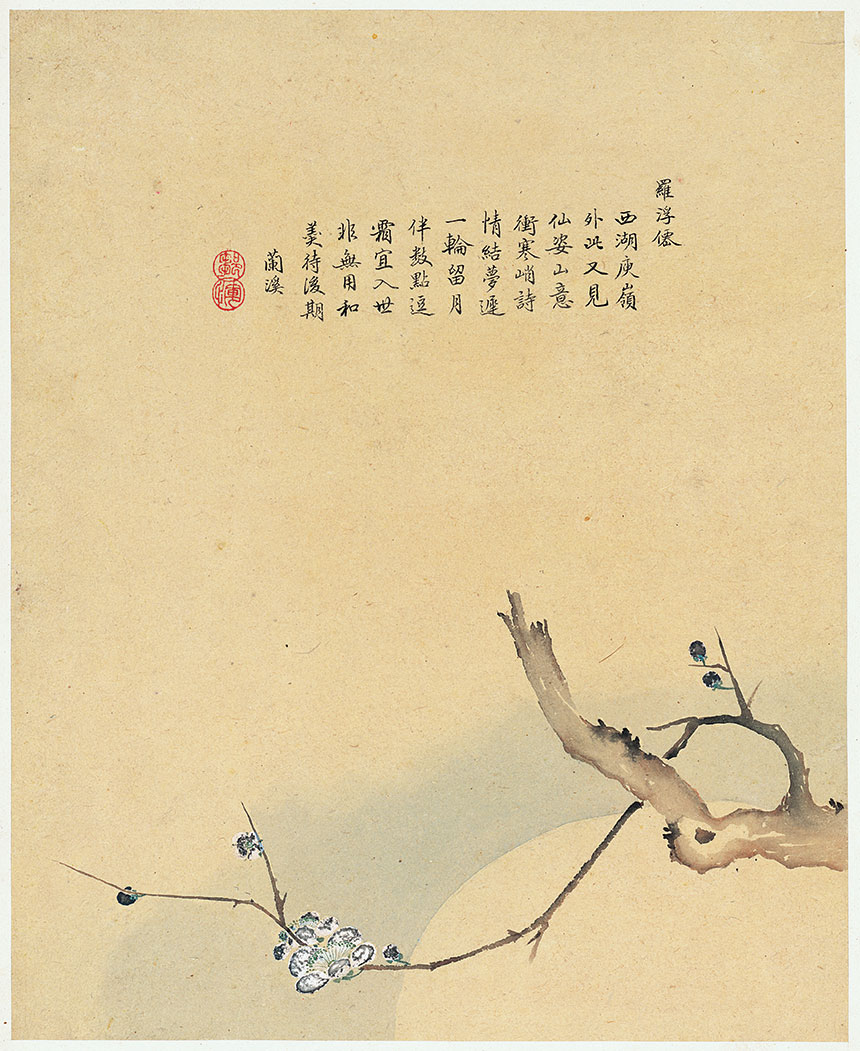 羅浮僊
西湖庾嶺
外此又見
仙姿山意
衝寒峭詩
情結夢遲
一輪留月
伴数點逗
霜宜入世
非無用和
羹待後期
蘭溪